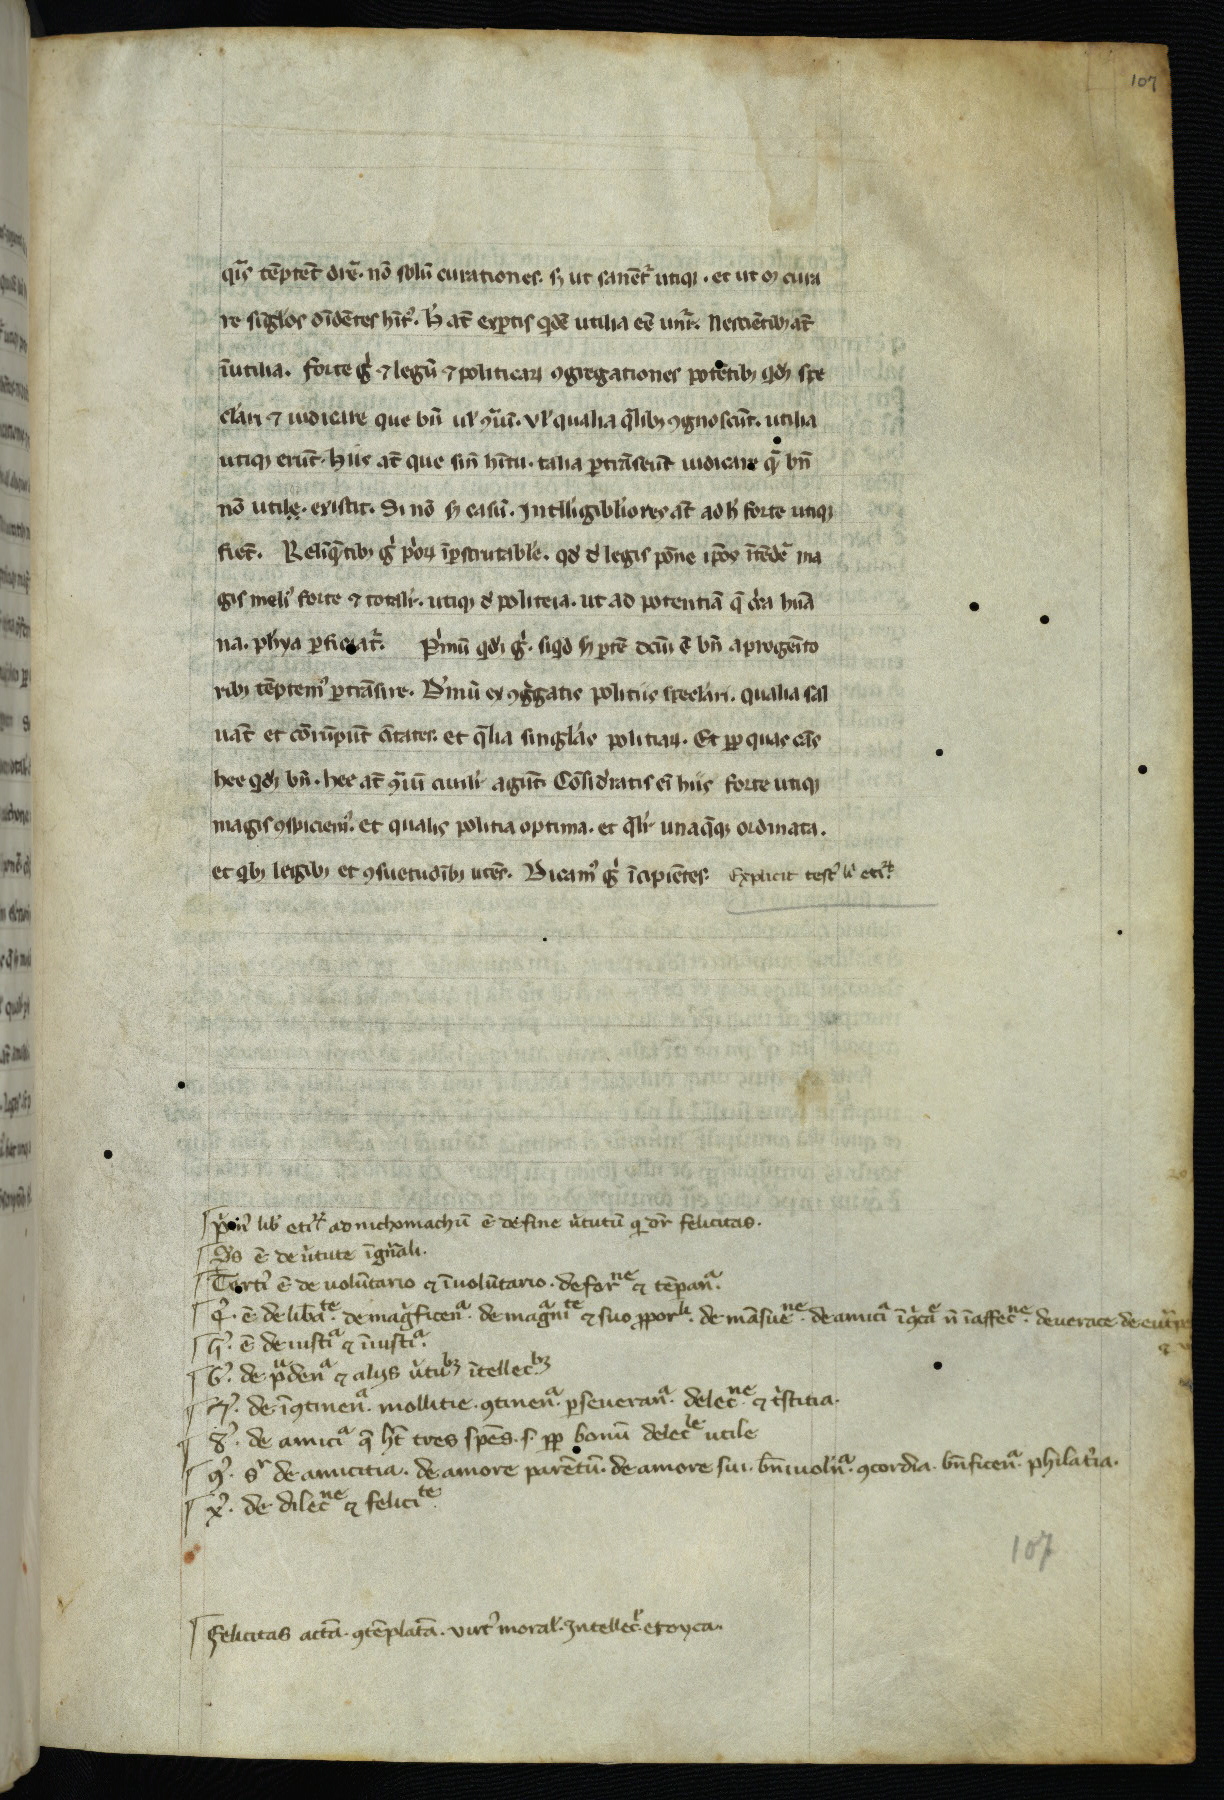 107
qᷓis tēptēt dr̄e. nō solū curationes. sꝫ ut sanent᷑ utiqꝫ. et ut ꝫ cura
re sīglos diuidētes hītꝰ. h̄ aūt exꝑtis qͥdē utilia eē unt᷑. Nescientibꝫ aūt
īutilia. Forte gͥ ⁊ legū ⁊ politicaꝝ ꝯgregationes potētibꝫ qͥdē spe
clari ⁊ iudicare que bn̄ ul̓ ꝯͣiū. Vl̓ qualia qͣlibꝫ ꝯgnoscūt. utilia
utiqꝫ erūt. Hiis aūt que sin̄ hītu. talia ꝑtrāseūt iudicare qͥdē bn̄
nō utile. existit. Si nō sꝫ casū. Intelligibliores aūt ad h̓ forte utiqꝫ
fiēt. Relīq̄tibꝫ gͥ pͥoꝝ īꝑscrutabile. qd̓ d̓ legis pōne ip̄os ītēde᷑ ma
gis meliꝰ forte ⁊ totalr̓. utiqꝫ d̓ politeia. ut ad potentiā q̄ cͥca huā
na. phỹa ꝑficiat᷑. Pͥmū qͥdē gͥ. siqͥd sꝫ ꝑtē dc̄m ē bn̄ a progenito
ribꝫ tēptemꝰ ꝑtrāsire. Dīmū ex ꝯgͣgatis politiis speclari. qualia sal
uāt et cōrūpūt ciuitates. et qͣlia singlas politiaꝝ. Et ꝓp quas cās
hee qͥdē bn̄. hee aūt ꝯͣiū ciuilr̓ agūt. Cōsideratis eī hiis forte utiqꝫ
magis ꝯspiciemꝰ. et qualis politia optima. et qͣlr̓ unaq̄qꝫ ordinata.
et qͥbꝫ legibꝫ et ꝯsuetudībꝫ utēs. Dicamꝰ gͥ īcipiētes. Explicit test᷑ li etiꝯͬ
pͥmꝰ lib̓ etiꝯͬ ad nichomachū ē de fine u̓tutū q̄ dr̄ felicitas.
Sꝰs ē de u̓tute ī gn̄ali.
Tertiꝰ ē de uolūtario ⁊ īuolūtario. de forⁿᵉ ⁊ tēpanᵃ.
4ꝰ. ē de lib̄aᵗᵉ. de magͥficenᵃ. de magᵃniᵗᵉ ⁊ suo ꝓporˡⁱ. de māsueⁿᵉ. de amiciᵃ ī qͥcāᵉ n̄ ī affecⁿᵉ. de uerace
5ꝰ. ē de iustiᵃ ⁊ īiustiᵃ.
6ꝰ. de pᵘdenᵃ ⁊ aliis u̓tuᵇꝫ ītellecᵇꝫ
7ꝰ. de īꝯtinenᵃ. mollitie. ꝯtinenᵃ. ꝑseueranᵃ. delecⁿᵉ. ⁊ tͥstitia.
8ꝰ. de amiciᵃ q̄ hēt tres spēs. s. ꝓp bonū delecˡᵉ utile
9ꝰ. sʳ de amicitia. de amore parētū. de amore sui. bn̄iuolnᵃ. ꝯcordia. bn̄ficenᵃ. philatͥa.
xꝰ. de dilecⁿᵉ ⁊ feliciᵗᵉ.
107
Felicitas actā. ꝯtēplatā. virtꝰ moral̓. Intellecˡ. eroyca.